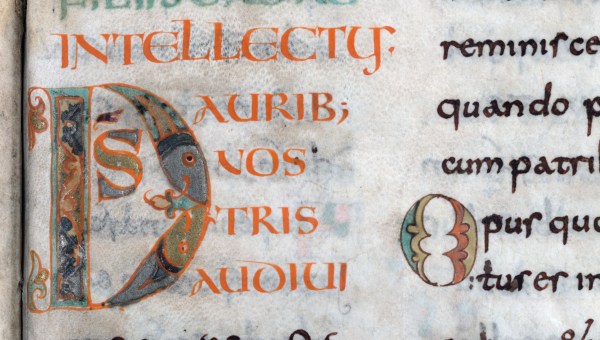 INTELLECTUS·
DS AURIB;
NOS
TRIS
AUDIUI
reminisce
quando p
cum patri
Opus quo
tus es in